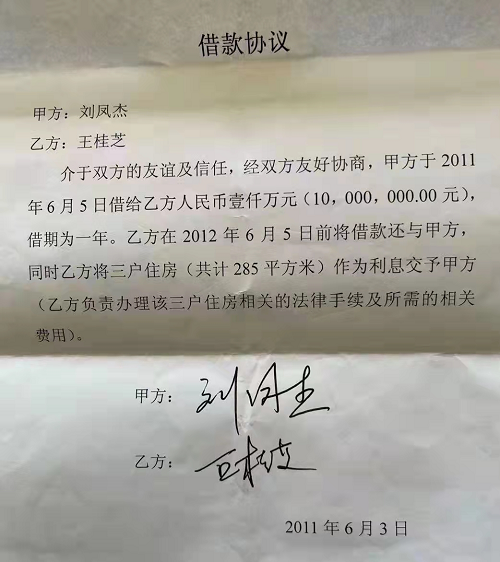 借款协议
甲方：刘凤杰
乙方：王桂芝
介于双方的友谊及信任，经双方友好协商，甲方于 2011
年 6 月 5 日借给乙方人民币壹仟万元（10，000，000.00 元），
借期为一年。乙方在 2012 年 6 月 5 日前将借款还与甲方，
同时乙方将三户住房（共计 285 平方米）作为利息交予甲方
（乙方负责办理该三户住房相关的法律手续及所需的相关
费用）。
甲方：刘凤杰
乙方：王桂芝
2011 年 6 月 3 日